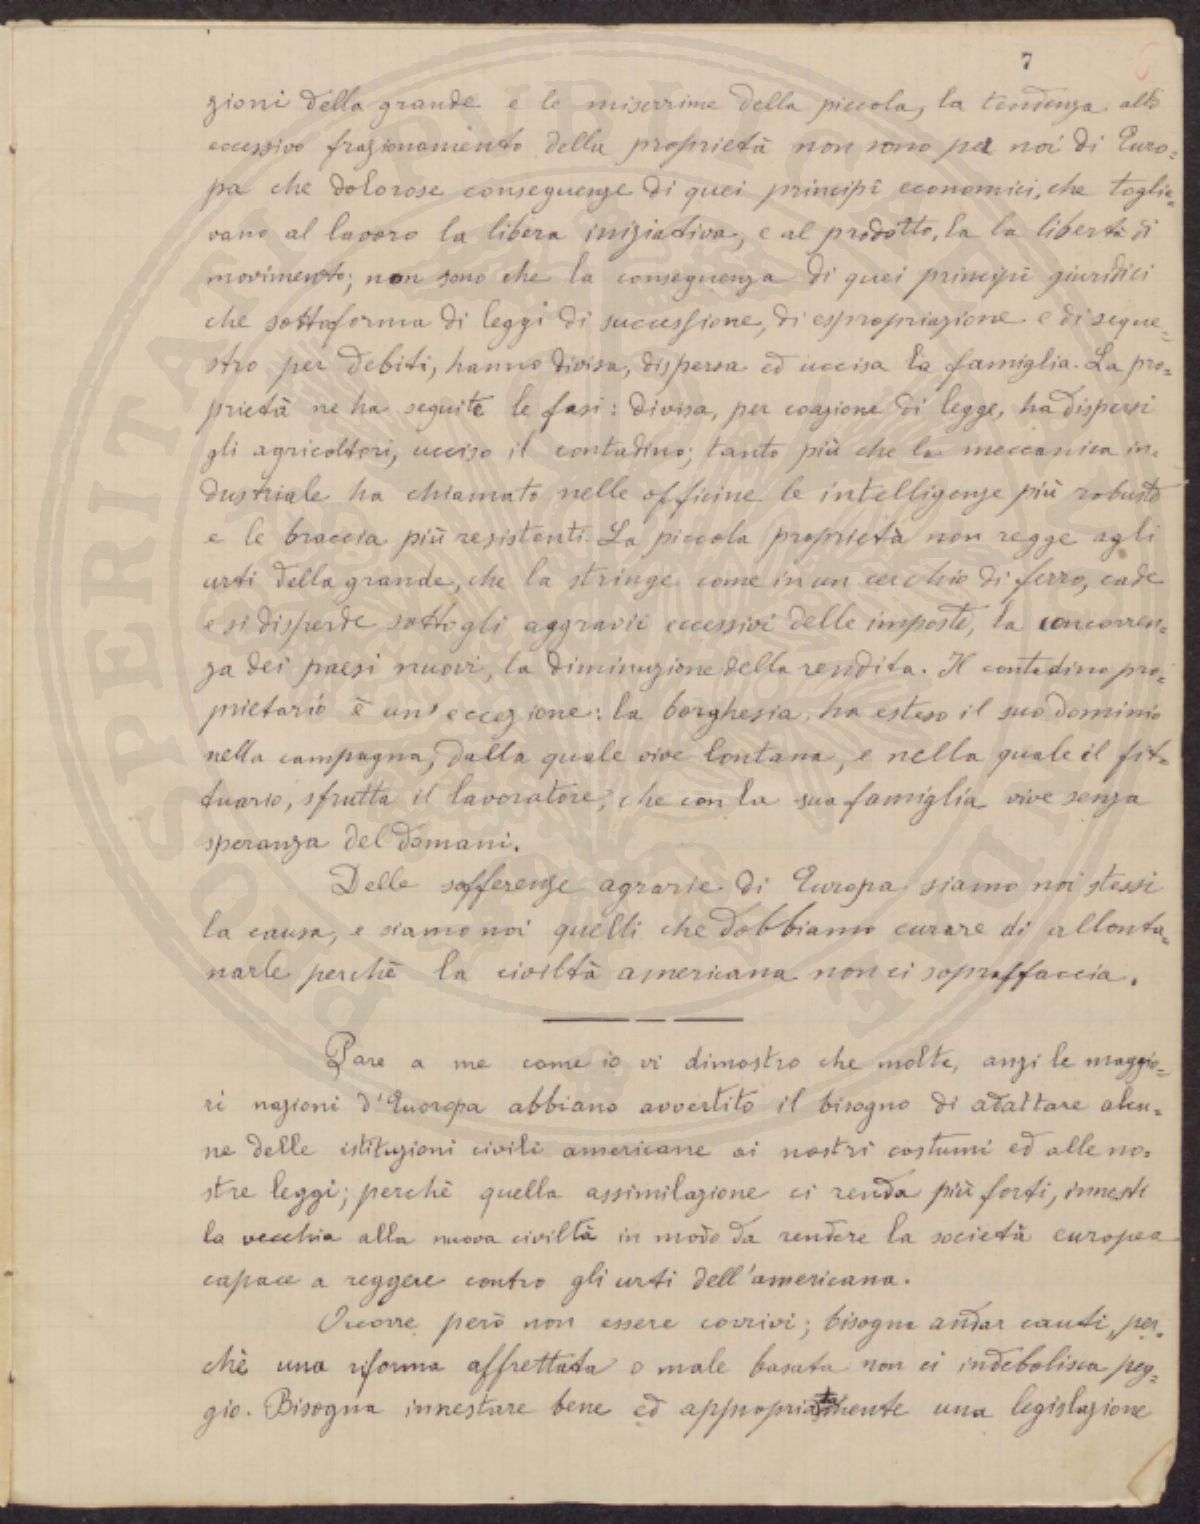 7
6
zioni della grande e le miserrime della piccola, la tendenza allo
eccessivo frazionamento della proprietà non sono per noi di Euro=
pa che dolorose conseguenze di quei principî economici, che toglie=
vano al lavoro la libera iniziativa, e al prodotto, la la libertà di
movimento; non sono che la conseguenza di quei principî giuridici
che sottoforma di leggi di successione, di espropriazione e di seque=
stro per debiti, hanno divisa, dispersa ed uccisa la famiglia. La pro=
prietà ne ha seguite le fasi: divisa, per coazione di legge, ha dispersi
gli agricoltori, ucciso il contadino; tanto più che la meccanica in=
dustriale ha chiamato nelle officine le intelligenze più robuste
e le braccia più resistenti. La piccola proprietà non regge agli
urti della grande, che la stringe come in un cerchio di ferro, cade
e si disperde sotto gli aggravii eccessivi delle imposte, la concorren=
za dei paesi nuovi, la diminuzione della rendita. Il contadino pro=
prietario è un'eccezione: la borghesia, ha esteso il suo dominio
nella campagna, dalla quale vive lontana, e nella quale il fit=
tuario, sfrutta il lavoratore, che con la sua famiglia vive senza
speranza del domani.
Delle sofferenze agrarie di Europa siamo noi stessi
la causa, e siamo noi quelli che dobbiamo curare di allonta=
narle perchè la civiltà americana non ci sopraffaccia.
Pare a me come io vi dimostro che molte, anzi le maggio=
ri nazioni d'Euoropa abbiano avvertito il bisogno di adattare alcu=
ne delle istituzioni civili americane ai nostri costumi ed alle no=
stre leggi; perchè quella assimilazione ci renda più forti, innesti
la vecchia alla nuova civiltà in modo da rendere la società europea
capace a reggere contro gli urti dell'americana.
Occorre però non essere corrivi; bisogna andar cauti, per=
chè una riforma affrettata o male basata non ci indebolisca peg=
gio. Bisogna innestare bene ed appropriatamente una legislazione
PROSPERITATI